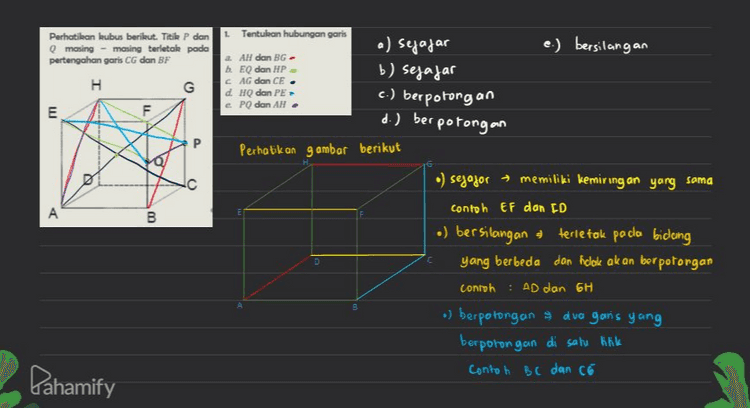 Perhatikan kubus berikut. Titik P dan
Q masing – masing terletak pada
pertengahan garis CG dan BF
H
G
E
F
P
Q
D
C
A
B
1. Tentukan hubungan garis
a. AH dan BG
b. EQ dan HP
c. AG dan CE
d. HQ dan PE
e. PQ dan AH
a) sejajar
b) sejajar
c.) berpotongan
d.) berpotongan
e.) bersilangan
Perhatikan gambar berikut
H
G
E
F
D
C
A
B
•) sejajar → memiliki kemiringan yang sama
contoh EF dan CD
•) bersilangan → terletak pada bidang
yang berbeda dan tidak akan berpotongan
contoh : AD dan GH
•) berpotongan → dua garis yang
berpotongan di satu titik
Contoh BC dan CG
Pahamify